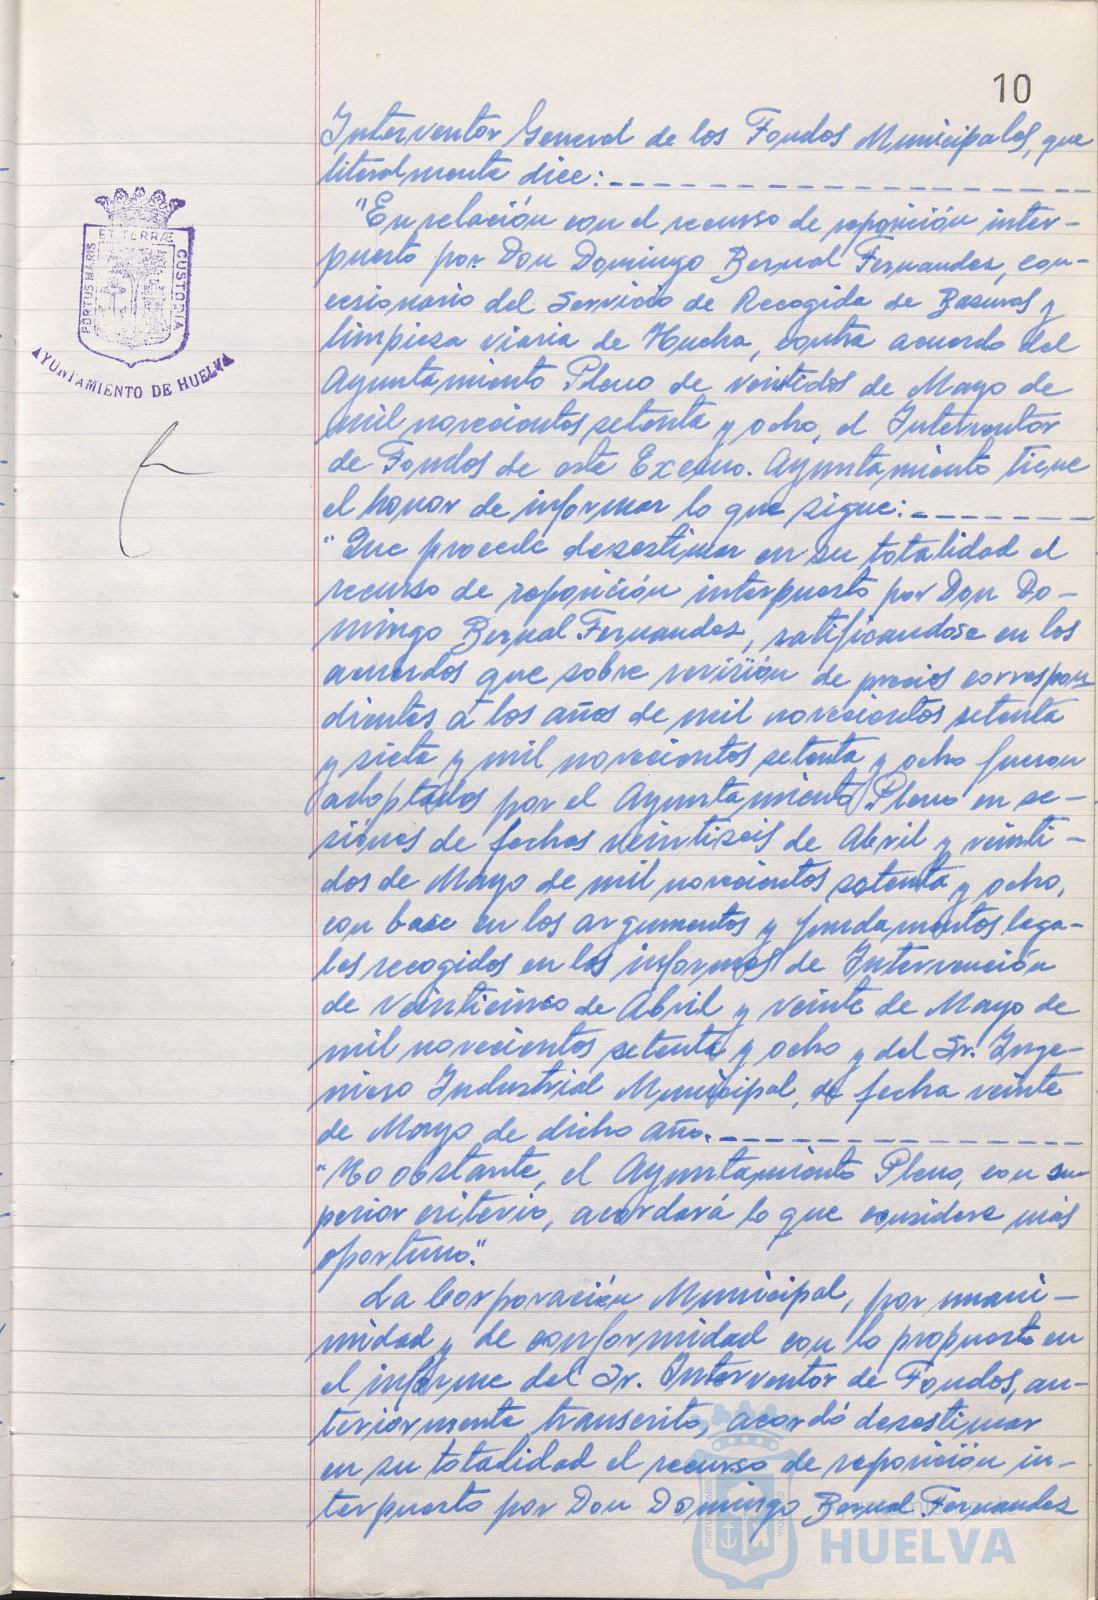 10
Interventor General de los Fondos Municipales, que
literalmente dice:
"En relación con el recurso de reposición inter-
puesto por Don Domingo Bernal Fernandez, con-
cesionario del Servicio de Recogida de Basuras y
limpieza viaria de Huelva, contra acuerdo del
Ayuntamiento Pleno de veintidos de Mayo de
mil novecientos setenta y ocho, el Interventor
de Fondos de este Excmo. Ayuntamiento tiene
el honor de informar lo que sigue:
"Que procede desestimar en su totalidad el
recurso de reposición interpuesto por Don Do-
mingo Bernal Fernandez, ratificandose en los
acuerdos que sobre revisión de precios correspon
dientes a los años de mil novecientos setenta
y siete y mil novecientos setenta y ocho fueron
adoptados por el Ayuntamiento Pleno en se-
siónes de fechas veintiseis de Abril y veinti-
dos de Mayo de mil novecientos setenta y ocho,
con base en los argumentos y fundamentos lega-
les recogidos en los informes de Intervención
de veinticinco de Abril y veinte de Mayo de
mil novecientos setenta y ocho y del Sr. Inge-
niero Industrial Municipal, de fecha veinte
de Mayo de dicho año.
"No obstante, el Ayuntamiento Pleno, con su
perior criterio, acordará lo que considere más
oportuno."
La Corporación Municipal, por unani-
midad y de conformidad con lo propuesto en
el informe del Sr. Interventor de Fondos, an-
teriormente transcrito, acordó desestimar
en su totalidad el recurso de reposición in-
terpuesto por Don Domingo Bernal Fernandez
PORTUS MARIS
ET TERRÆ
CUSTODIA
AYUNTAMIENTO DE HUELVA
HUELVA